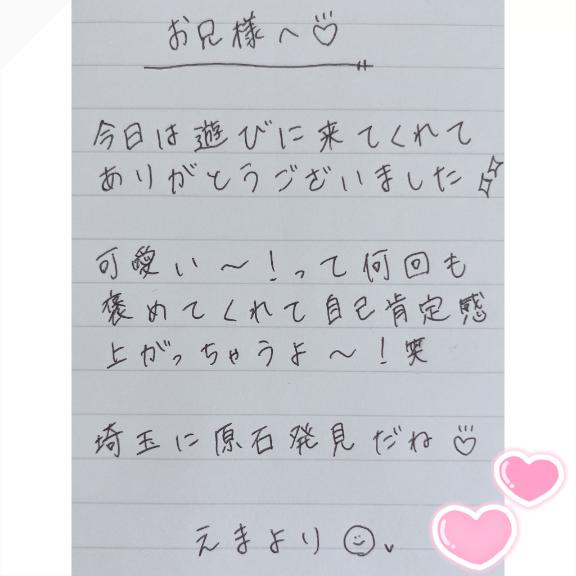 お兄様へ♡
今日は遊びに来てくれて
ありがとうございました✨
可愛い〜!って何回も
褒めてくれて自己肯定感
上がっちゃうよ〜!笑
埼玉に原石発見だね♡
えまより☺